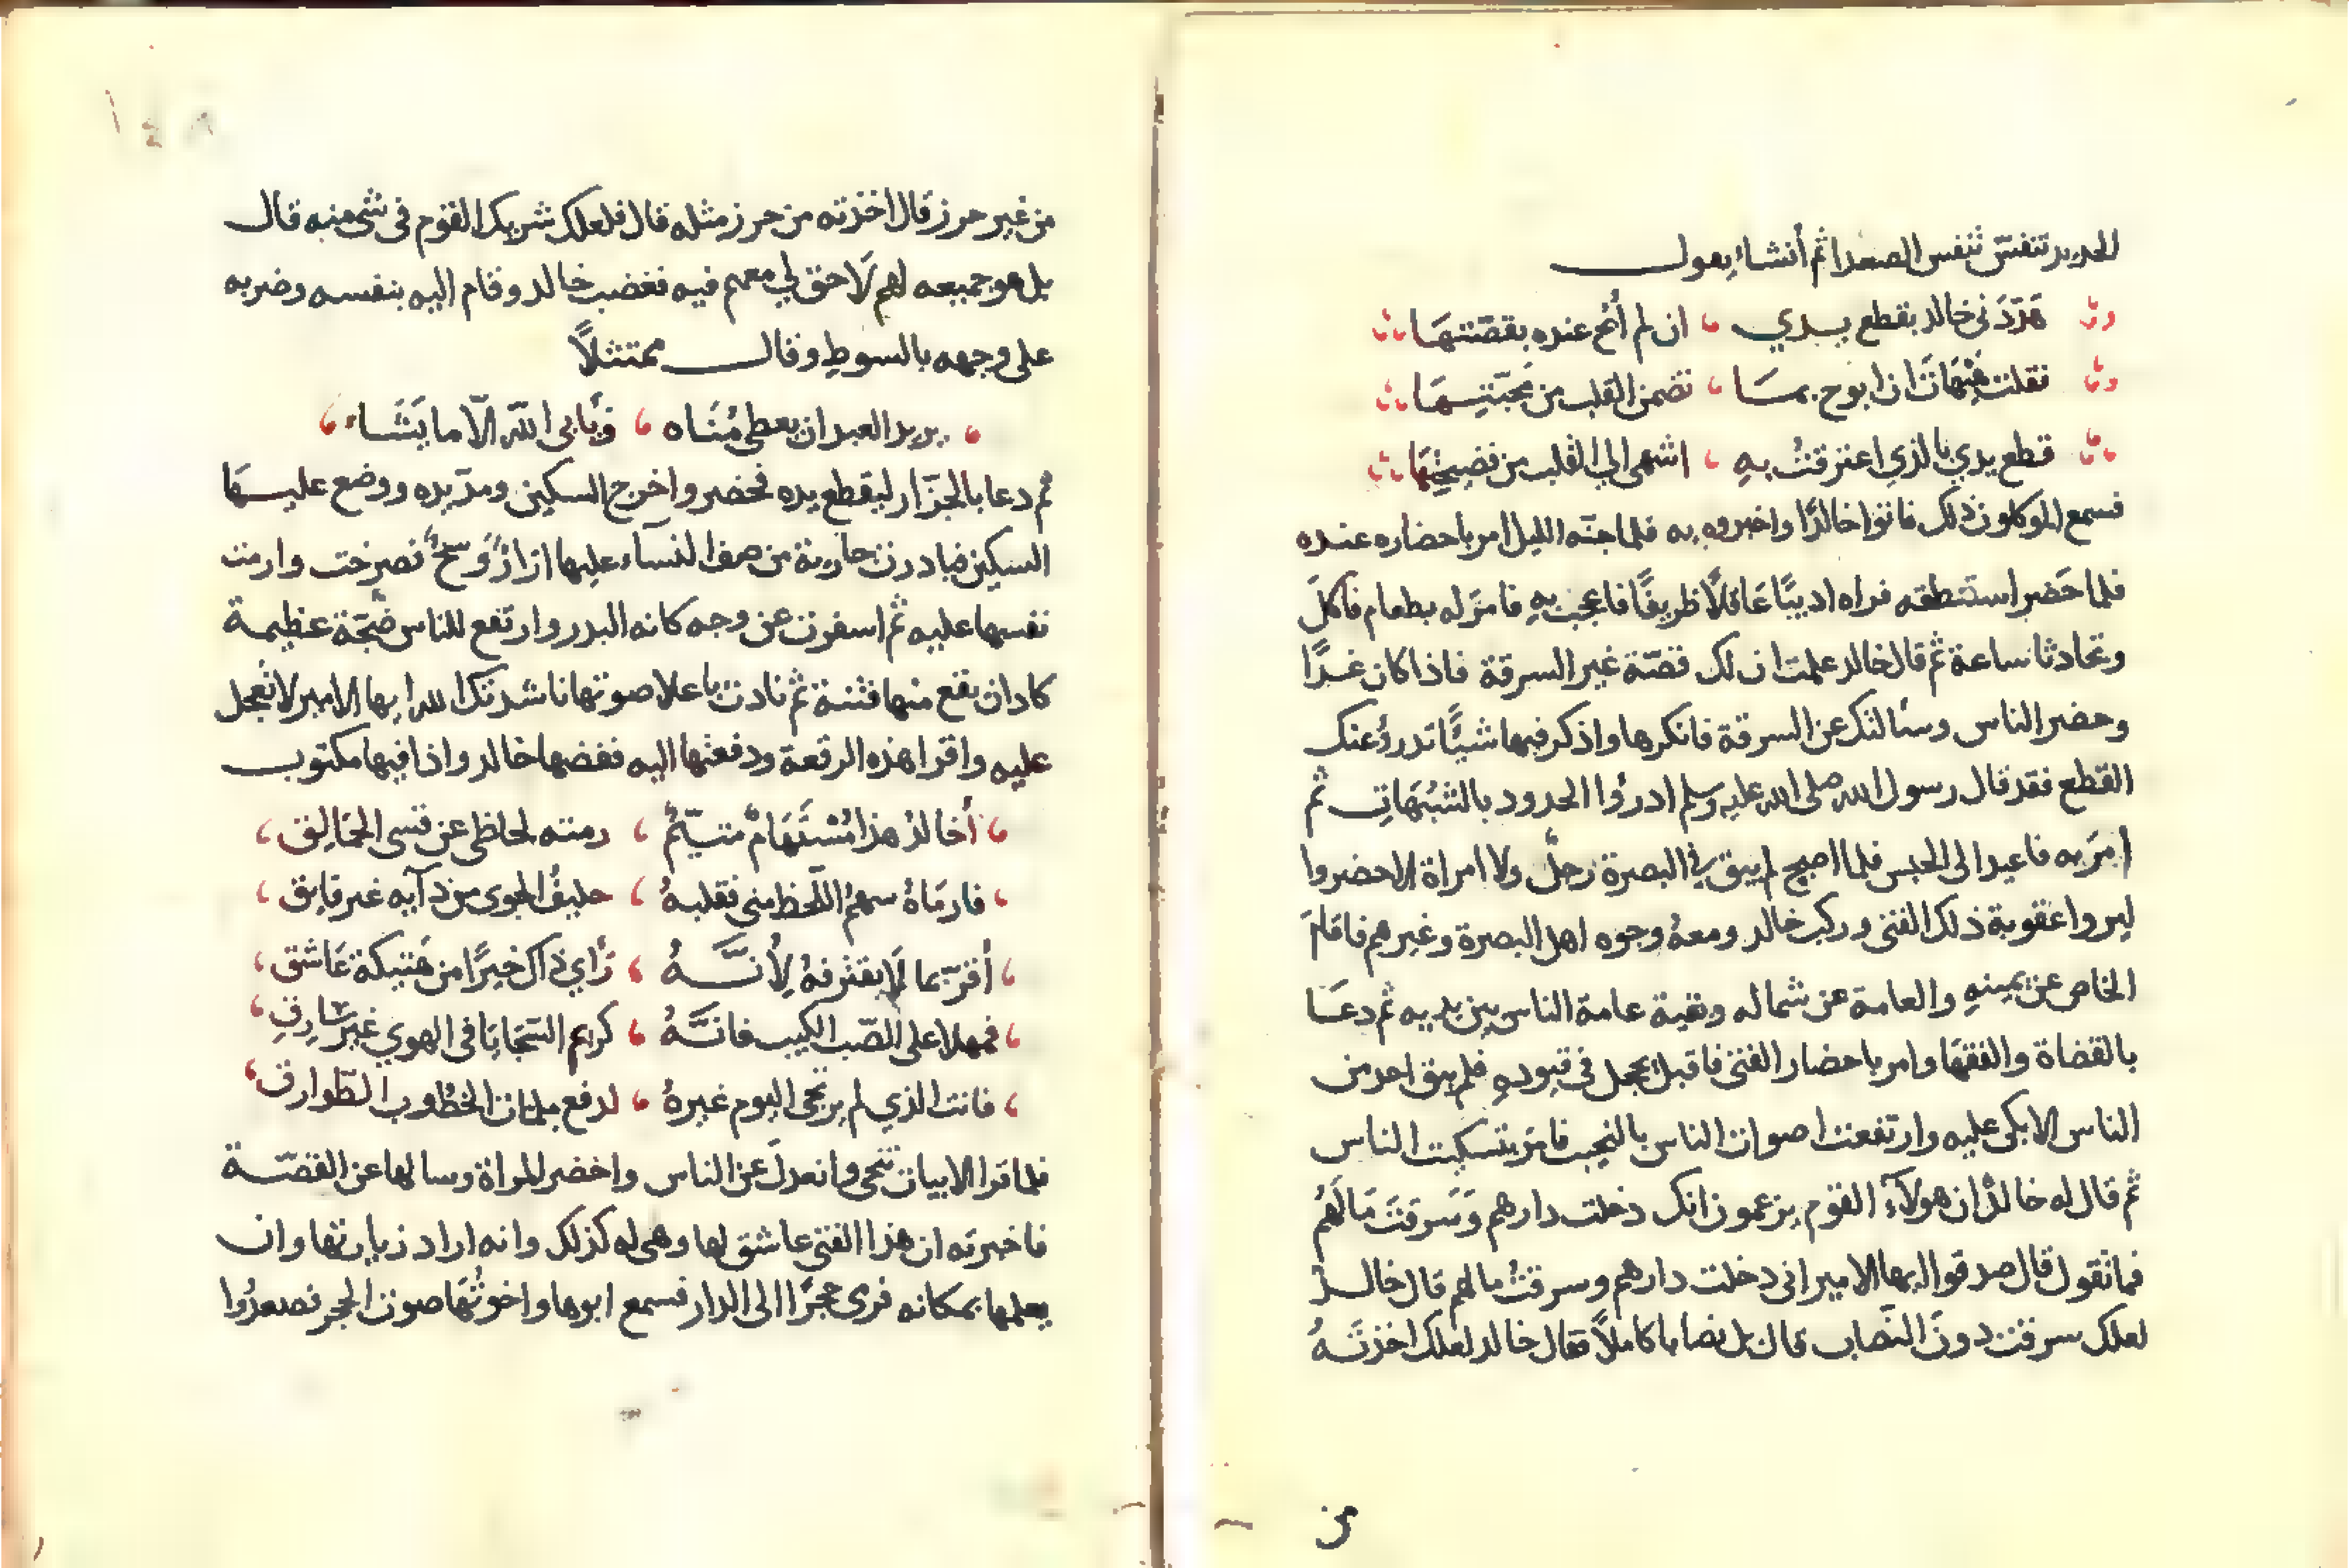 الحديد تنفس تنفس الصعدا ثم أنشاء يقول
هَدّدَني خالد بقطع يدي ، ان لم أبح عنده بقصّتهَا
فقلت هَيْهَات ان ابوح بمَا ، تضمن القلب من مَحَبّتهَا
قطع يدي بالذي اعترفتُ بهِ ، اشهى الي القلب من فضيحتِهَا
فسمع الموكلون ذلك فاتوا خالدًا واخبروه به فلما جنّه الليل امر باحضاره عنده
فلما حَضر استنطقه فراه اديبًا عَاقلًا ظريفًا فاعجبَ بهِ فامرَ له بطعام فاكلَ
وتحادثا ساعة ثم قال خالد علمت ان لك قصّة غير السرقة فاذا كان غدًا
وحضر الناس وسئالتك عن السرقة فانكرها واذكر فيها شيئًا تدرؤ عنك
القطع فقد قال رسول الله صلى الله عليه وسلم ادرؤا الحدود بالشبُهَات ثم
امرَ به فاعيد الى الحبس فلما اصبح لم يبق في البصرة رجلٌ ولا امراة الا حضروا
ليروا عقوبة ذلك الفتى وركب خالد ومعهُ وجوه اهل البصرة وغيرهم فاقامَ
الخاص عن يمينهِ والعامة عن شماله وبقية عامة الناس بين يديه ثم دعَا
بالقضاة والفقهَا وامر باحضار الفتى فاقبل يحجل في قيودهِ فلم يبق احد من
الناس الا بكى عليه وارتفعت اصوات الناس بالنحيب فامر بتسكيت الناس
ثم قال له خالدٌ ان هولآء القوم يزعمون انك دخلت دارهم وَسَرقتَ مَالَهُم
فما تقول قال صدقوا ايها الامير اني دخلت دارهم وسرقتُ مالهم قال خالدٌ
لعلك سرقت دونَ النّصاب قال بل نصابا كاملًا فقال خالد لعلك اخذتَهُ
من
من غير حرز قال اخذته من حرز مثله قال فلعلك شريك القوم في شي منه قال
بل هو جميعه لهم لَا حق لي معهم فيه فغضب خالد وقام اليه بنفسه وضربه
على وجهه بالسوطِ وقال متمثلًا
يريد العبد ان يعطى مُنَاه ، وَيأبى اللّه الّا ما يَشَاء
ثم دعا بالجزّار ليقطع يده فحضر واخرج السكين ومدّ يده ووضع عليهَا
السكين فبادرت جارية من صف النسآء عليها ازارٌ وَسخٌ فصرخت وارمت
نفسها عليه ثم اسفرت عن وجه كانه البدر وارتفع للناس ضجّة عظيمة
كاد ان يقع منها فتنة ثم نادت باعلا صوتها ناشدتك الله ايها الامير لا تعجل
عليه واقرا هذه الرقعة ودفعتها اليه ففضها خالد واذا فيها مكتوب
أخالدُ هذا مُسْتَهَامٌ متيّمٌ ، رمته لحاظي عن قسى الحمَالِق
فارمَاهُ سهمُ اللّحظ مني فقلبهُ ، حليفُ الجوى من دآيه غير فايق
أقرّ بما لَا يقترفهُ لِأنَّهُ ، رَأي ذاك خيرًا من هَتيكة عَاشق
فمهلا على الصّب الكيب فانَّهُ ، كريم السّجَايَا في الهوي غير سَارِقِ
فانت الذي لم يرتجى اليوم غيرهُ ، لدفع ملمات الخطُوب الطّوارق
فلما قرا الابيات تنحى وانعدلَ عن الناس واحضر المراة وسالها عن القصّة
فاخبرته ان هذا الفتى عاشق لها وهي له كذلك وانه اراد زيارتها وان
يعلمها بمكانه فرمى حجرًا الى الدار فسمع ابوها واخوتُهَا صوت الحجر فصعدُوا